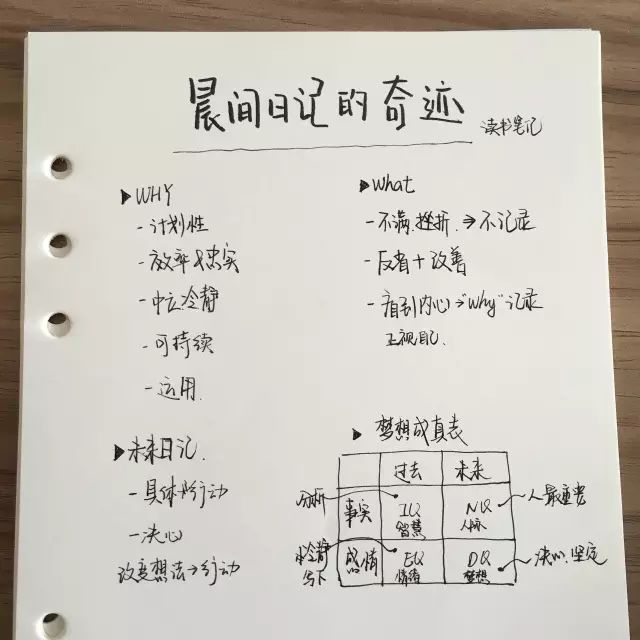 晨间日记的奇迹
读书笔记
▶WHY
-计划性
-效率&忠实
-中立冷静
-可持续
-运用
▶What
-不满.挫折.→不记录
-反省+改善
-看到内心→"Why"记录
正视自己.
▶未来日记.
-具体的行动
-决心
改变想法→行动
▶梦想成真表
过去 未来
分析 事实 IQ NQ 人最重要
智慧 人脉
冷静 感情 EQ DQ 决心.坚定
写下 情绪 梦想